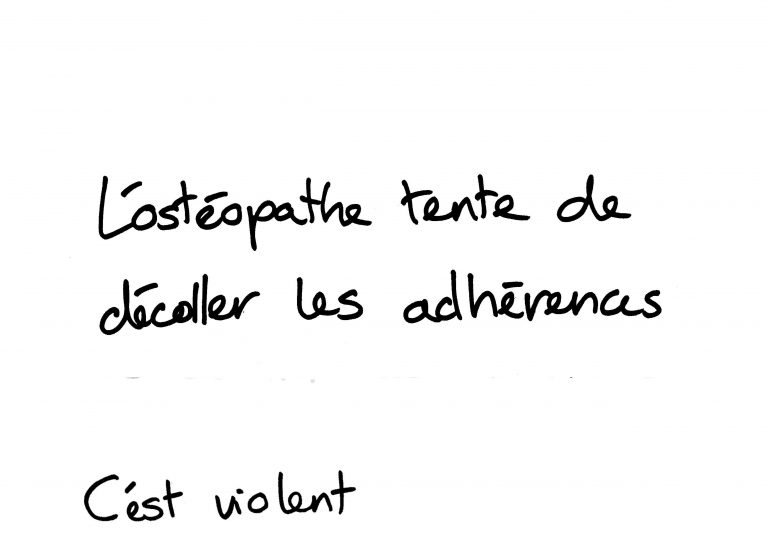 L'ostéopathe tente de
décoller les adhérences
C'est violent